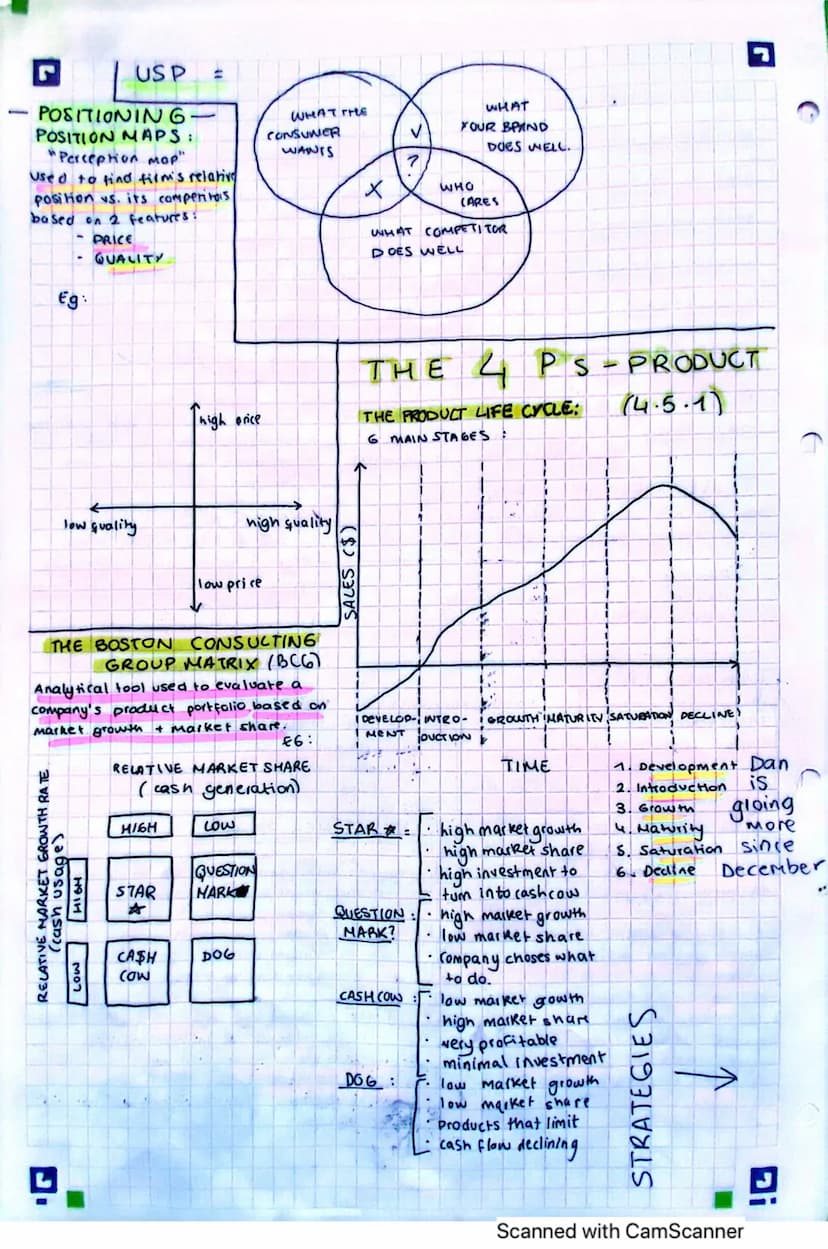 USP =
WHAT THE
CONSUMER
WANTS
WHAT
YOUR BRAND
DOES WELL.
V
?
X
WHO
CARES
WHAT COMPETITOR
DOES WELL
- POSITIONING -
POSITION MAPS:
"Perception map"
used to find film's relative
position vs. its competitors
based on 2 features:
- PRICE
- QUALITY
Eg:
high price
low quality
high quality
low price
THE 4 P's - PRODUCT
THE PRODUCT LIFE CYCLE: (4.5.1)
6 MAIN STAGES :
SALES ($)
DEVELOP-
MENT
INTRO-
DUCTION
GROWTH
MATURITY
SATURATION
DECLINE
TIME
1. Development
2. Introduction
3. Growth
4. Maturity
5. Saturation
6. Decline
Dan
is
more
since
December
THE BOSTON CONSULTING
GROUP MATRIX (BCG)
Analytical tool used to evaluate a
company's product portfolio based on
market growth + market share.
EG:
RELATIVE MARKET SHARE
(cash generation)
RELATIVE MARKET GROWTH RATE
(cash usage)
HIGH
LOW
HIGH
STAR
QUESTION
MARK
LOW
CA$H
COW
DOG
STAR =
· high market growth
· high market share
· high investment to
turn into cashcow
QUESTION :
MARK?
· high market growth
· low market share
· company choses what
to do.
CASHCOW :
· low market growth
· high market share
· very profitable
· minimal investment
DOG :
· low market growth
· low market share
· products that limit
· cash flow declining
STRATEGIES
Scanned with CamScanner